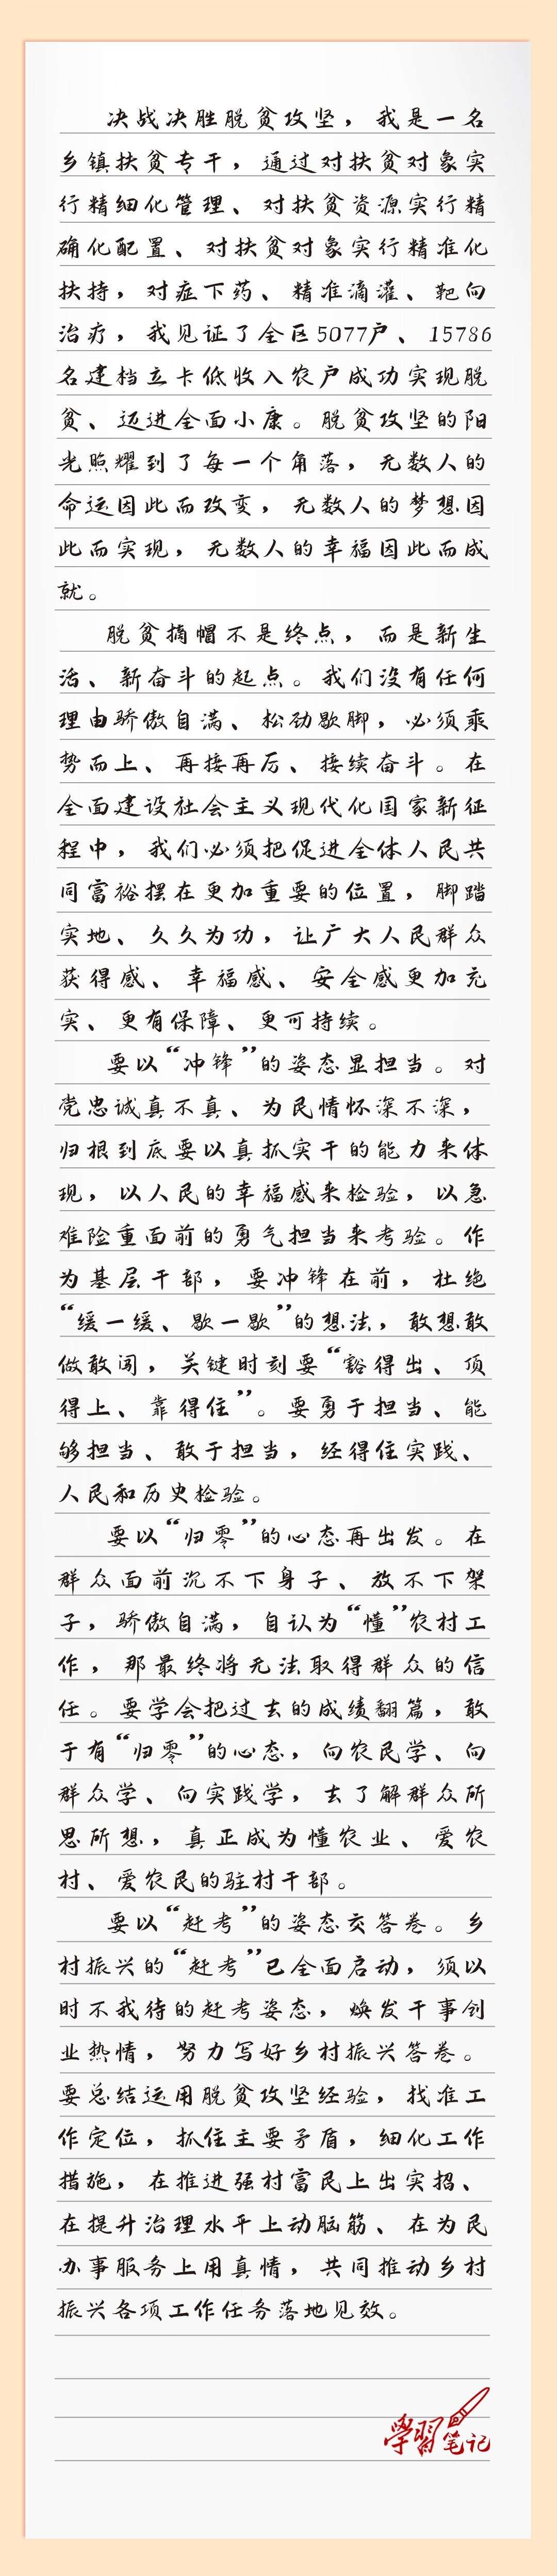 决战决胜脱贫攻坚，我是一名
乡镇扶贫专干，通过对扶贫对象实
行精细化管理、对扶贫资源实行精
确化配置、对扶贫对象实行精准化
扶持，对症下药、精准滴灌、靶向
治疗，我见证了全区5077户、15786
名建档立卡低收入农户成功实现脱
贫、迈进全面小康。脱贫攻坚的阳
光照耀到了每一个角落，无数人的
命运因此而改变，无数人的梦想因
此而实现，无数人的幸福因此而成
就。
脱贫摘帽不是终点，而是新生
活、新奋斗的起点。我们没有任何
理由骄傲自满、松劲歇脚，必须乘
势而上、再接再厉、接续奋斗。在
全面建设社会主义现代化国家新征
程中，我们必须把促进全体人民共
同富裕摆在更加重要的位置，脚踏
实地、久久为功，让广大人民群众
获得感、幸福感、安全感更加充
实、更有保障、更可持续。
要以“冲锋”的姿态显担当。对
党忠诚真不真、为民情怀深不深，
归根到底要以真抓实干的能力来体
现，以人民的幸福感来检验，以急
难险重面前的勇气担当来考验。作
为基层干部，要冲锋在前，杜绝
“缓一缓、歇一歇”的想法，敢想敢
做敢闯，关键时刻要“豁得出、顶
得上、靠得住”。要勇于担当、能
够担当、敢于担当，经得住实践、
人民和历史检验。
要以“归零”的心态再出发。在
群众面前沉不下身子、放不下架
子，骄傲自满，自认为“懂”农村工
作，那最终将无法取得群众的信
任。要学会把过去的成绩翻篇，敢
于有“归零”的心态，向农民学、向
群众学、向实践学，去了解群众所
思所想，真正成为懂农业、爱农
村、爱农民的驻村干部。
要以“赶考”的姿态交答卷。乡
村振兴的“赶考”已全面启动，须以
时不我待的赶考姿态，焕发干事创
业热情，努力写好乡村振兴答卷。
要总结运用脱贫攻坚经验，找准工
作定位，抓住主要矛盾，细化工作
措施，在推进强村富民上出实招、
在提升治理水平上动脑筋、在为民
办事服务上用真情，共同推动乡村
振兴各项工作任务落地见效。
學習笔记